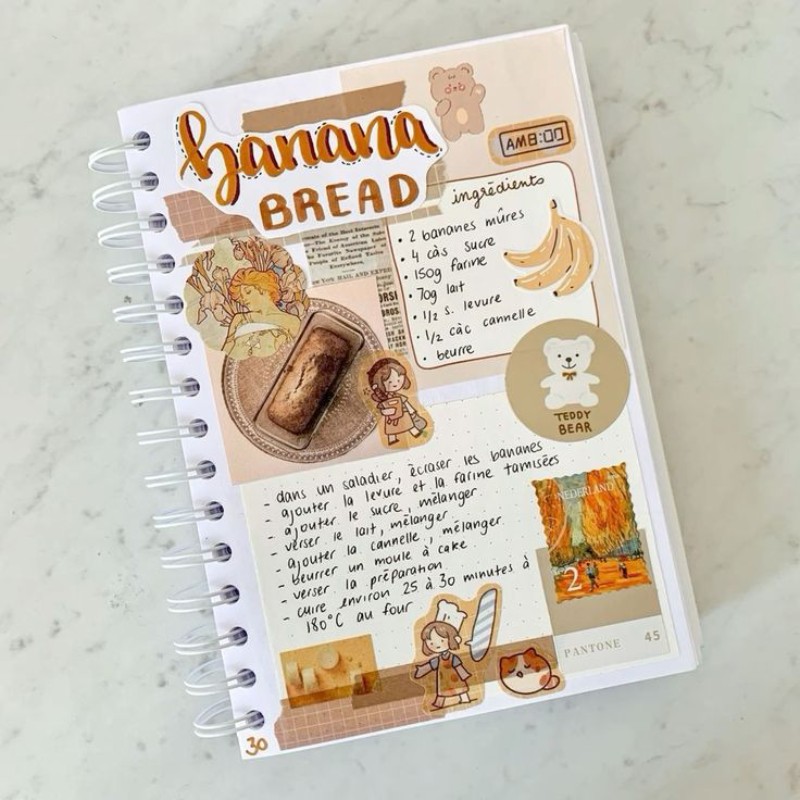 banana
BREAD
AM8:00
ingrédients
• 2 bananes mûres
• 4 càs sucre
• 150g farine
• 70g lait
• 1/2 s. levure
• 1/2 càc cannelle
• beurre
TEDDY
BEAR
- dans un saladier, écraser les bananes
- ajouter la levure et la farine tamisées
- ajouter le sucre, mélanger
- verser le lait, mélanger
- ajouter la cannelle, mélanger
- beurrer un moule à cake
- verser la préparation
- cuire environ 25 à 30 minutes à
180°C au four
NEDERLAND
2
PANTONE 45
30